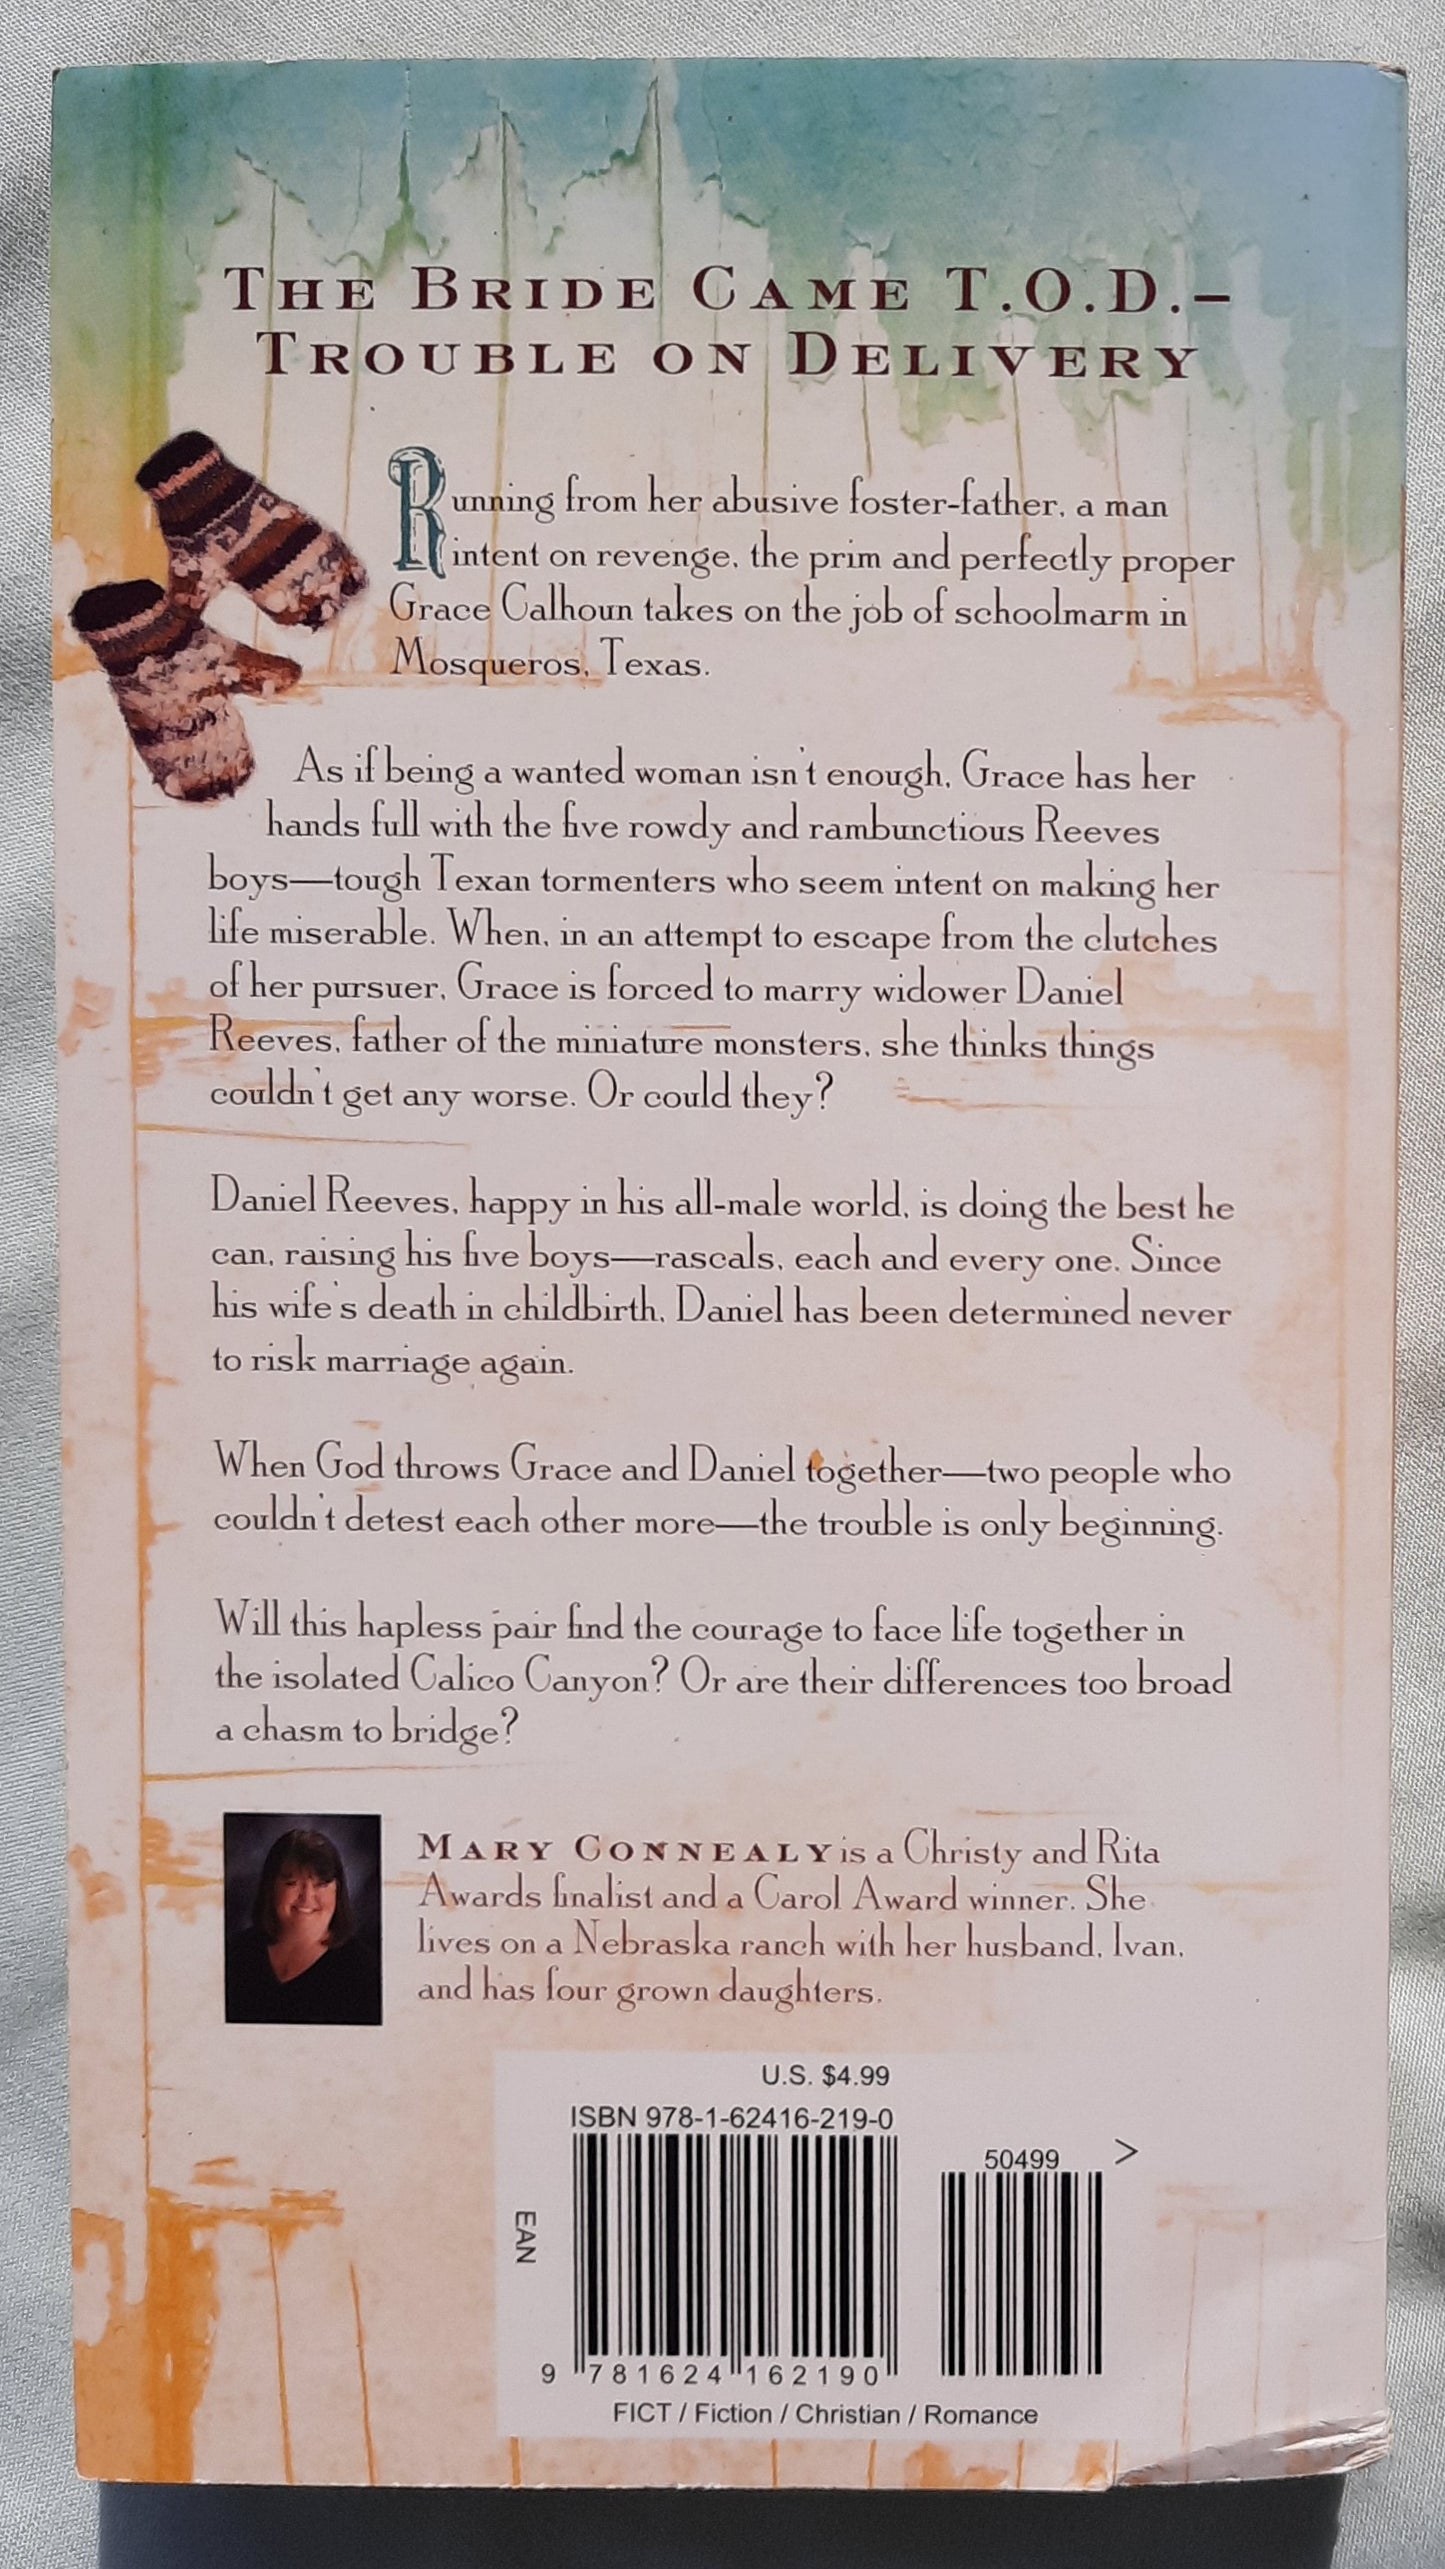 THE BRIDE CAME T.O.D.–
TROUBLE ON DELIVERY
Running from her abusive foster-father, a man
intent on revenge, the prim and perfectly proper
Grace Calhoun takes on the job of schoolmarm in
Mosqueros, Texas.
As if being a wanted woman isn't enough, Grace has her
hands full with the five rowdy and rambunctious Reeves
boys—tough Texan tormenters who seem intent on making her
life miserable. When, in an attempt to escape from the clutches
of her pursuer, Grace is forced to marry widower Daniel
Reeves, father of the miniature monsters, she thinks things
couldn't get any worse. Or could they?
Daniel Reeves, happy in his all-male world, is doing the best he
can, raising his five boys—rascals, each and every one. Since
his wife's death in childbirth, Daniel has been determined never
to risk marriage again.
When God throws Grace and Daniel together—two people who
couldn't detest each other more—the trouble is only beginning.
Will this hapless pair find the courage to face life together in
the isolated Calico Canyon? Or are their differences too broad
a chasm to bridge?
MARY CONNEALY is a Christy and Rita
Awards finalist and a Carol Award winner. She
lives on a Nebraska ranch with her husband, Ivan,
and has four grown daughters.
U.S. $4.99
ISBN 978-1-62416-219-0
50499 >
EAN
9 781624 162190
FICT / Fiction / Christian / Romance